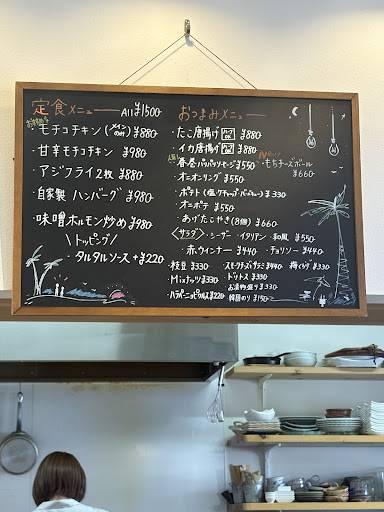 定食メニュー All ¥1500
モチコチキン(メインのみ) ¥880
・甘辛モチコチキン ¥980
・アジフライ2枚 ¥880
・自家製ハンバーグ ¥980
・味噌ホルモン炒め ¥980
\トッピング/
・タルタルソース +¥220
おつまみメニュー
・たこ唐揚げ ¥880
・イカ唐揚げ ¥880
・春巻パリパリソーセージ ¥550
・オニオンリング ¥550
・ポテト(塩・ケチャップ・バーベキュー) ¥330
・オニポテ ¥550
・あげたこやき(8個) ¥660
・もちチーズボール ¥660
〈サラダ〉・シーザー・イタリアン・和風 ¥550
・赤ウィンナー ¥440 ・チョリソー ¥440
・枝豆 ¥330 ・スモークチーズサラミ ¥440 ・梅くらげ ¥330
・Mixナッツ ¥330 ・ドリトス ¥330
・お漬物盛り ¥330
・ハラペーニョピクルス ¥220 ・韓国のり ¥150